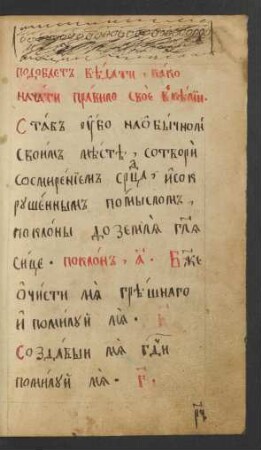 подобаетъ вѣдати, како
начати правило своє в кѣлїи.
Ставъ оубо на обычномъ
своимъ мѣстѣ, сотвори
со смиренїемъ срⷣца, и сок
рушеннымъ помысломъ,
поклоны до земля гл҃я
сице. поклонъ, а҃. Бж҃е
очисти мя грѣшнаго
и помилуй мя. в҃
Создавыи мя гдⷭ҇и
помилуй мя. г҃.